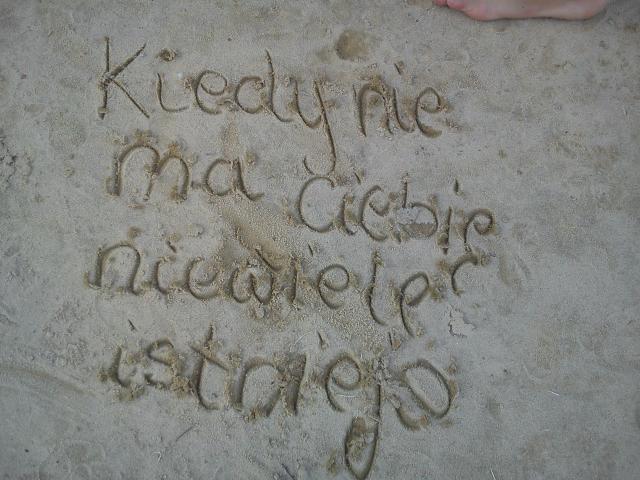 Kiedy nie
ma Ciebie
niewiele
istnieje